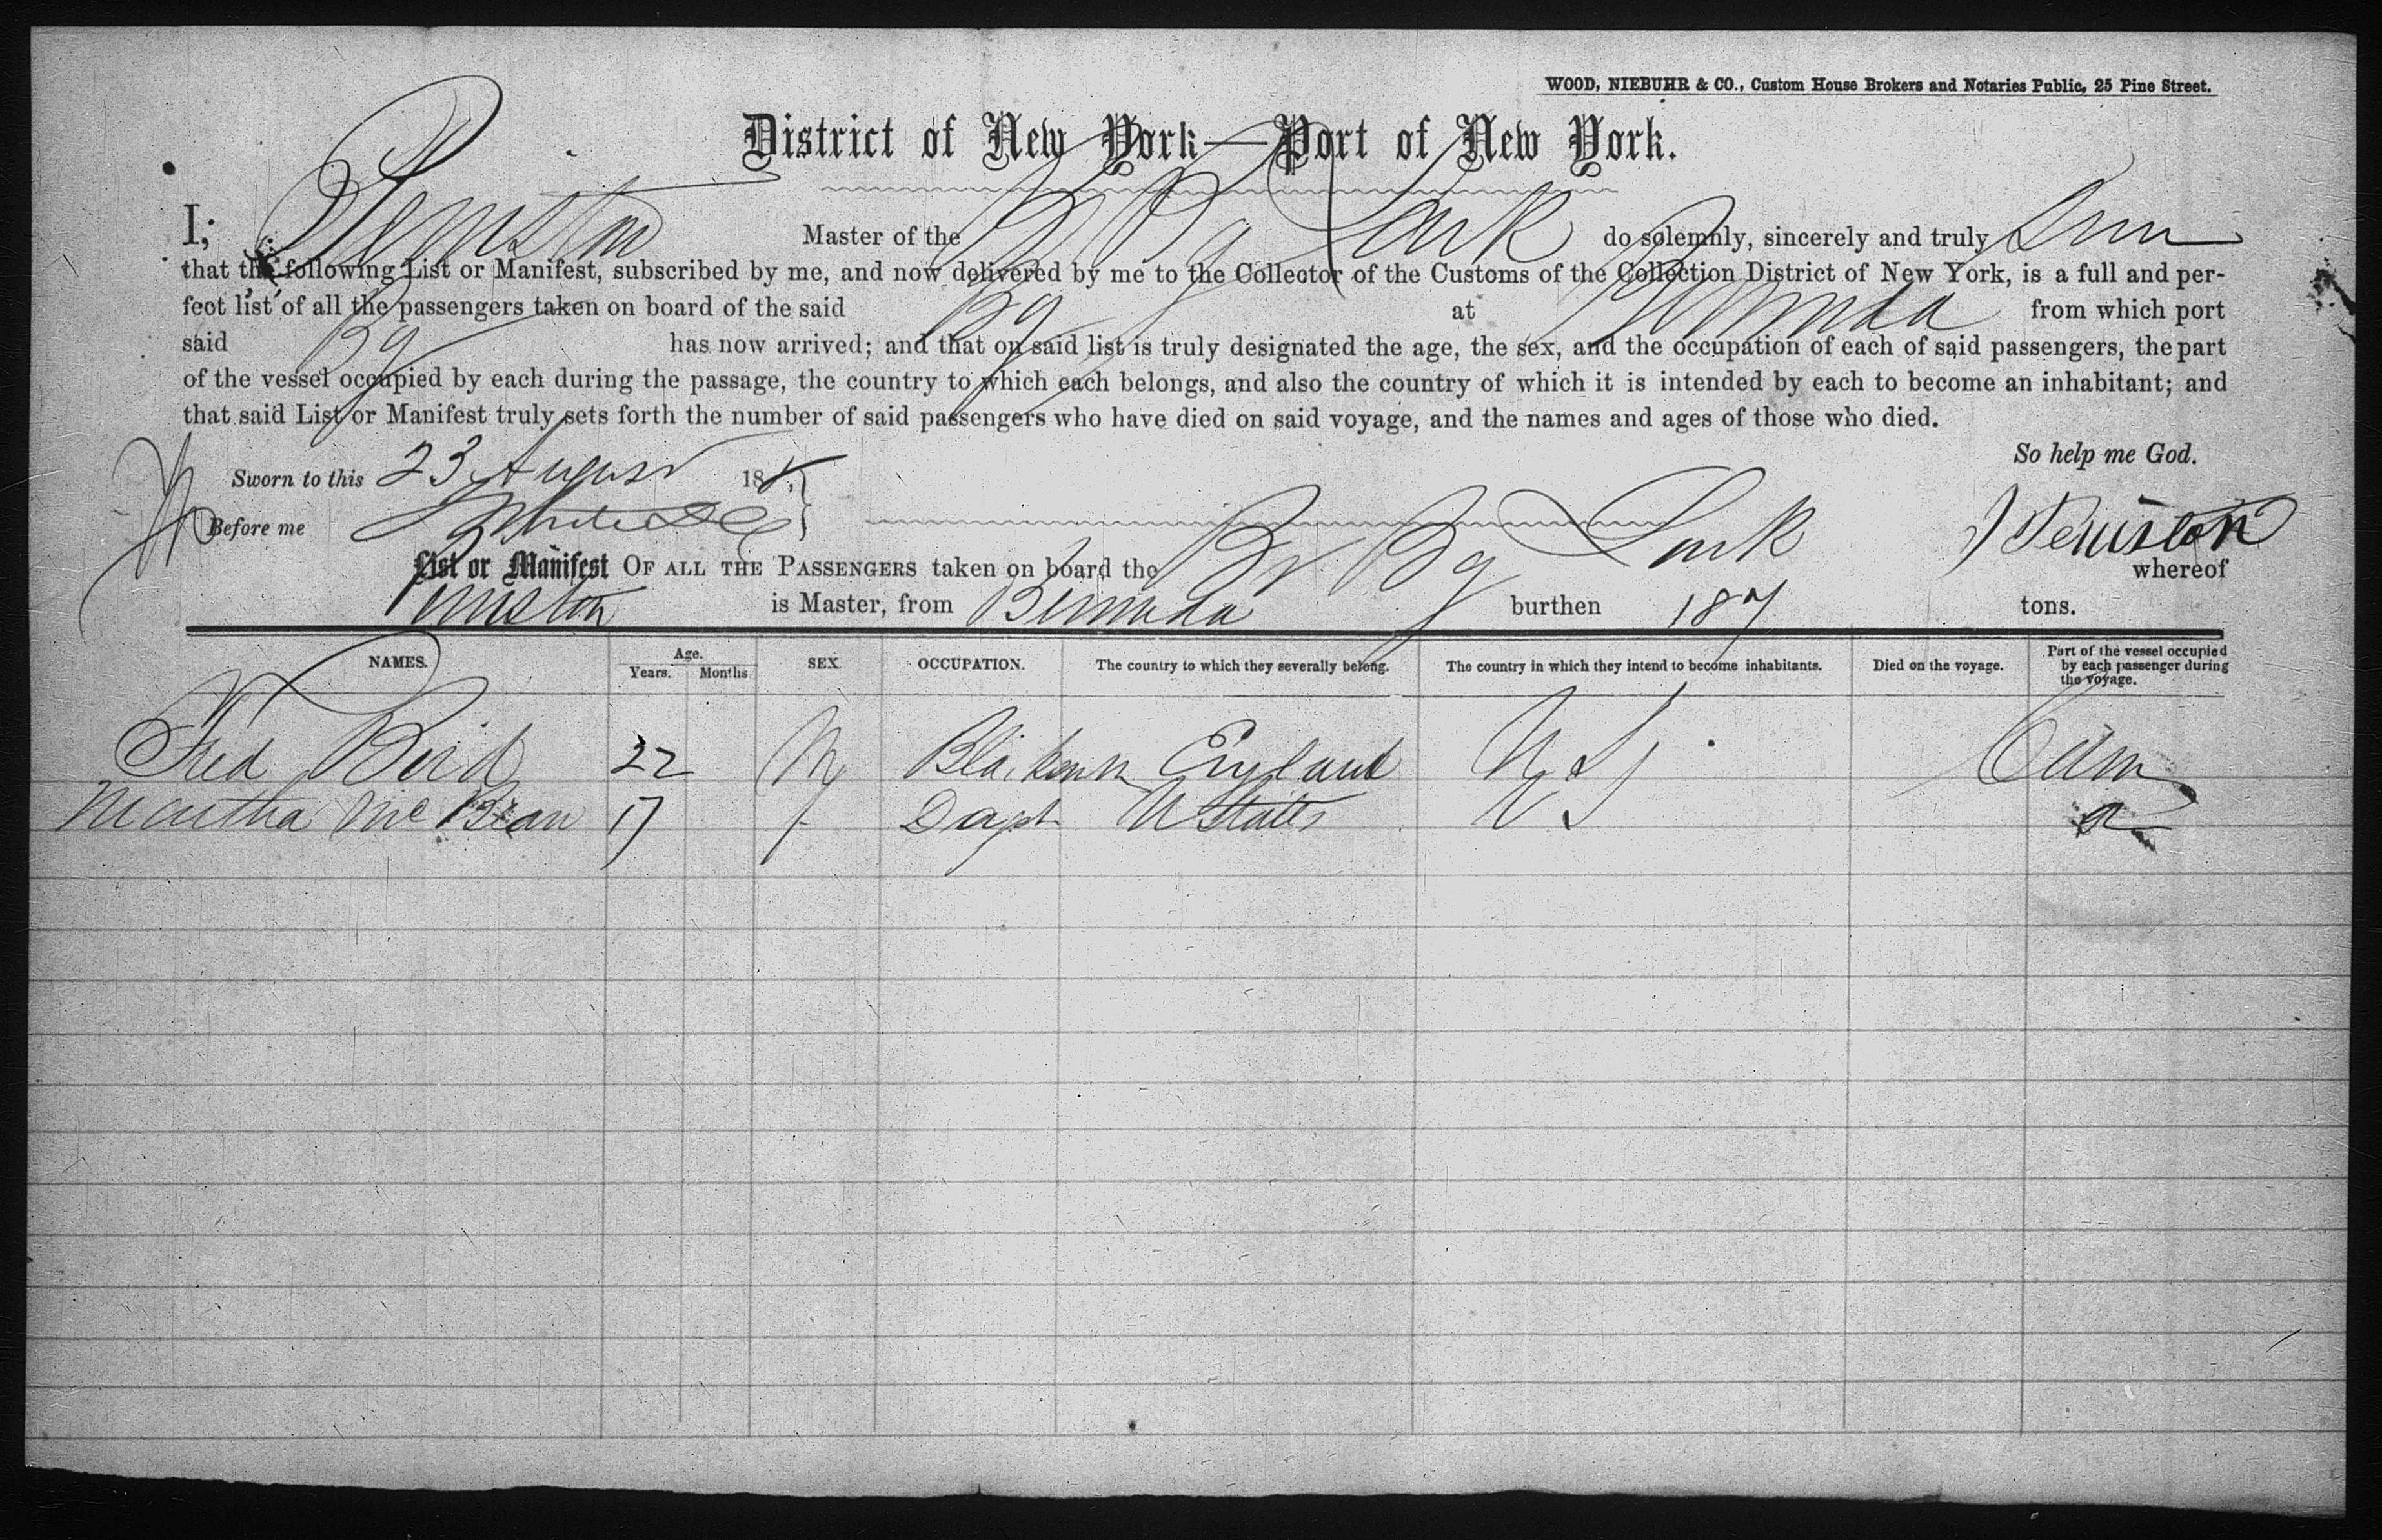 WOOD, NIEBUHR & CO., Custom House Brokers and Notaries Public, 25 Pine Street.
District of New York—Port of New York.
I, Peniston Master of the Br Bg Lark do solemnly, sincerely and truly
that the following List or Manifest, subscribed by me, and now delivered by me to the Collector of the Customs of the Collection District of New York, is a full and per-
fect list of all the passengers taken on board of the said Bg at Bermuda from which port
said Bg has now arrived; and that on said list is truly designated the age, the sex, and the occupation of each of said passengers, the part
of the vessel occupied by each during the passage, the country to which each belongs, and also the country of which it is intended by each to become an inhabitant; and
that said List or Manifest truly sets forth the number of said passengers who have died on said voyage, and the names and ages of those who died.
So help me God.
Sworn to this 23 August 18
Before me
J Peniston
List or Manifest OF ALL THE PASSENGERS taken on board the Br Bg Lark whereof
Peniston is Master, from Bermuda burthen 187 tons.
NAMES. Age. Years. Months SEX. OCCUPATION. The country to which they severally belong. The country in which they intend to become inhabitants. Died on the voyage. Part of the vessel occupied by each passenger during the voyage.
Fred Bird 22 M England U S
Martha McBean 17 f U States U S